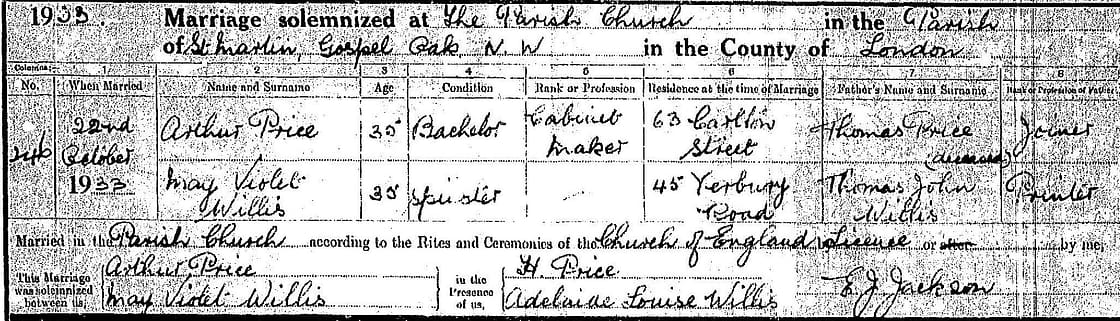 1933. Marriage solemnized at The Parish Church in the Parish
of St Martin, Gospel Oak N.W in the County of London
Columns:— 1 2 3 4 5 6 7 8
No. When Married Name and Surname Age Condition Rank or Profession Residence at the time of Marriage Father's Name and Surname Rank or Profession of Father
246 22nd October 1933 Arthur Price 35 Bachelor Cabinet Maker 63 Carlton Street Thomas Price (deceased) Joiner
May Violet Willis 35 Spinster — 45 Yerbury Road Thomas John Willis Printer
Married in the Parish Church according to the Rites and Ceremonies of the Church of England by Licence or after by me,
This Marriage was solemnized between us, Arthur Price May Violet Willis in the Presence of us, H. Price Adelaide Louise Willis E. J. Jackson